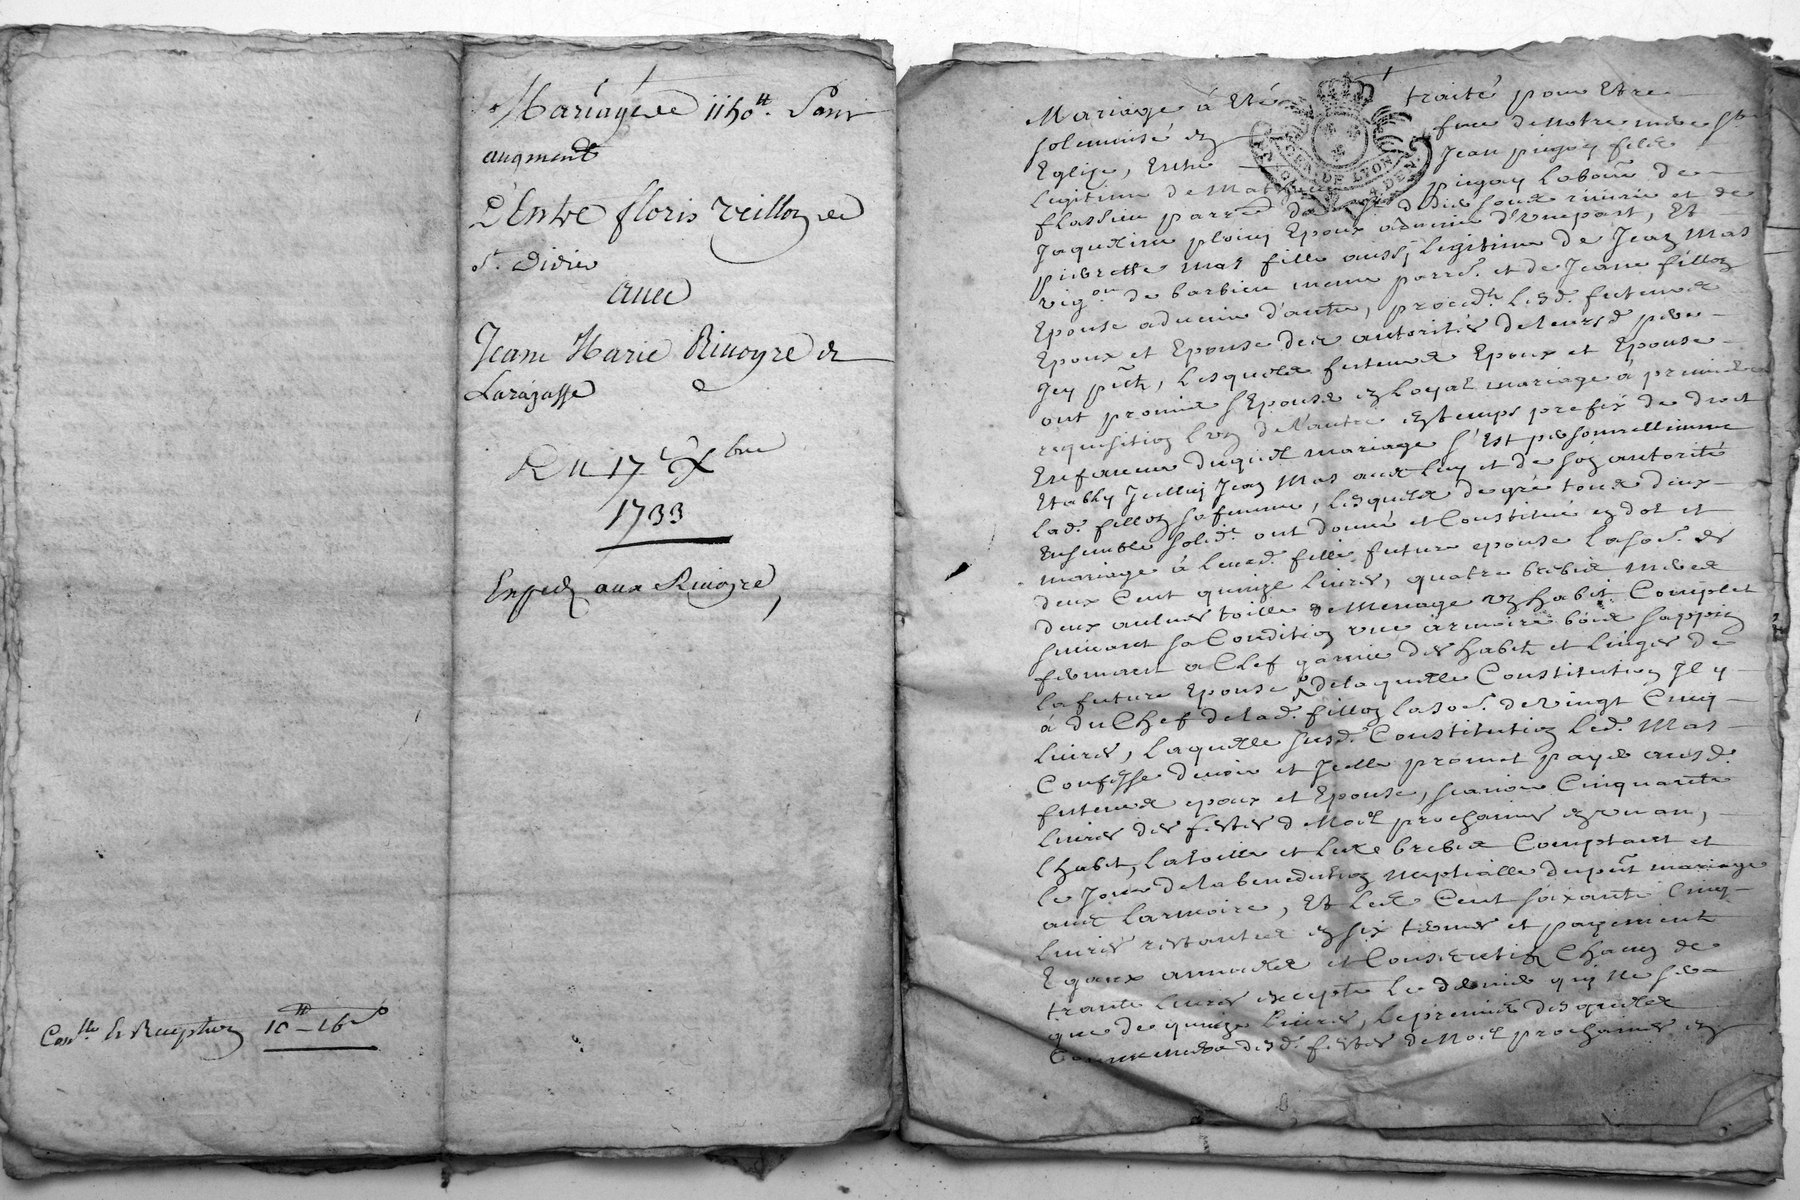 Mariage de 1150ᵗᵗ. Sans
augment
D'Entre floris veillon de
Sᵗ. didier
avec
Jeane Marie Rivoyre de
Larajasse
Du 17ᵉ Xbre
1733
Exped aux Rivoyre,
Conˡˡᵉ & Reception 10ᵗᵗ - 16ˢ
Mariage à Eté traité pour Etre
solemnisé en face de Notre mere Sᵗᵉ
Eglise, Entre Jean pugay fils
GEN. DE LYON
4 DEN.
Legitime de pugay Labour de
flassieu parr. de Sᵗ didier sous riverie et de
Jaqueline Epoux advenir d'une part, Et
pierrette Mas fille aussy Legitime de Jean Mas
vigᵒⁿ de barbieu meme parrᵉ. et de Jeane fillon
Epouse advenir d'autre, procedᵗ Lesd. futeurs
Epoux et Epouse des autorités de leursd. pere
Icy pñts, Lesquels futeurs Epoux et Epouse
ont promis s'Epouser en Loyal mariage à premiere
requisition L'un de L'autre en temps prefix de droit
En faveur duquel mariage s'Est personnellement
Etably Jcelluy Jean Mas avec Luy et de son autorité
Lad. fillon sa femme, Lesquels de gré tous deux
Ensemble solid. ont donné et Constitué en dot et
mariage à Leurd. fille future epouse La so.ᵉ de
deux Cent quinze Livres, quatre brebis meres
deux aulnes toille de Menage un habit Complet
suivant sa Condition une armoire bois sappin
fermant a Clef garnie des habits et Linges de
La future Epouse, de laquelle Constitution Il y
à du Chef de lad. fillon La so.ᵉ de vingt Cinq
Livres, Laquelle susd. Constitution Led. Mas
Confesse devoir et Jcelle promet payer ausd.
futeurs epoux et Epouse, scavoir Cinquante
Livres des festes de Noël prochaines en un an,
L'habit, La toille et Les brebis Comptant et
Le Jour de la benediction Nuptialle du pñt mariage
avec L'armoire, Et Les Cent soixante Cinq
Livres restantes en six termes et payement
Egaux annuels et Consecutifs Chacun de
trente Livres excepté Le dernier qui ne sera
que de quinze Livres, Le premier desquels
Commencera desd. festes de Noël prochaines en